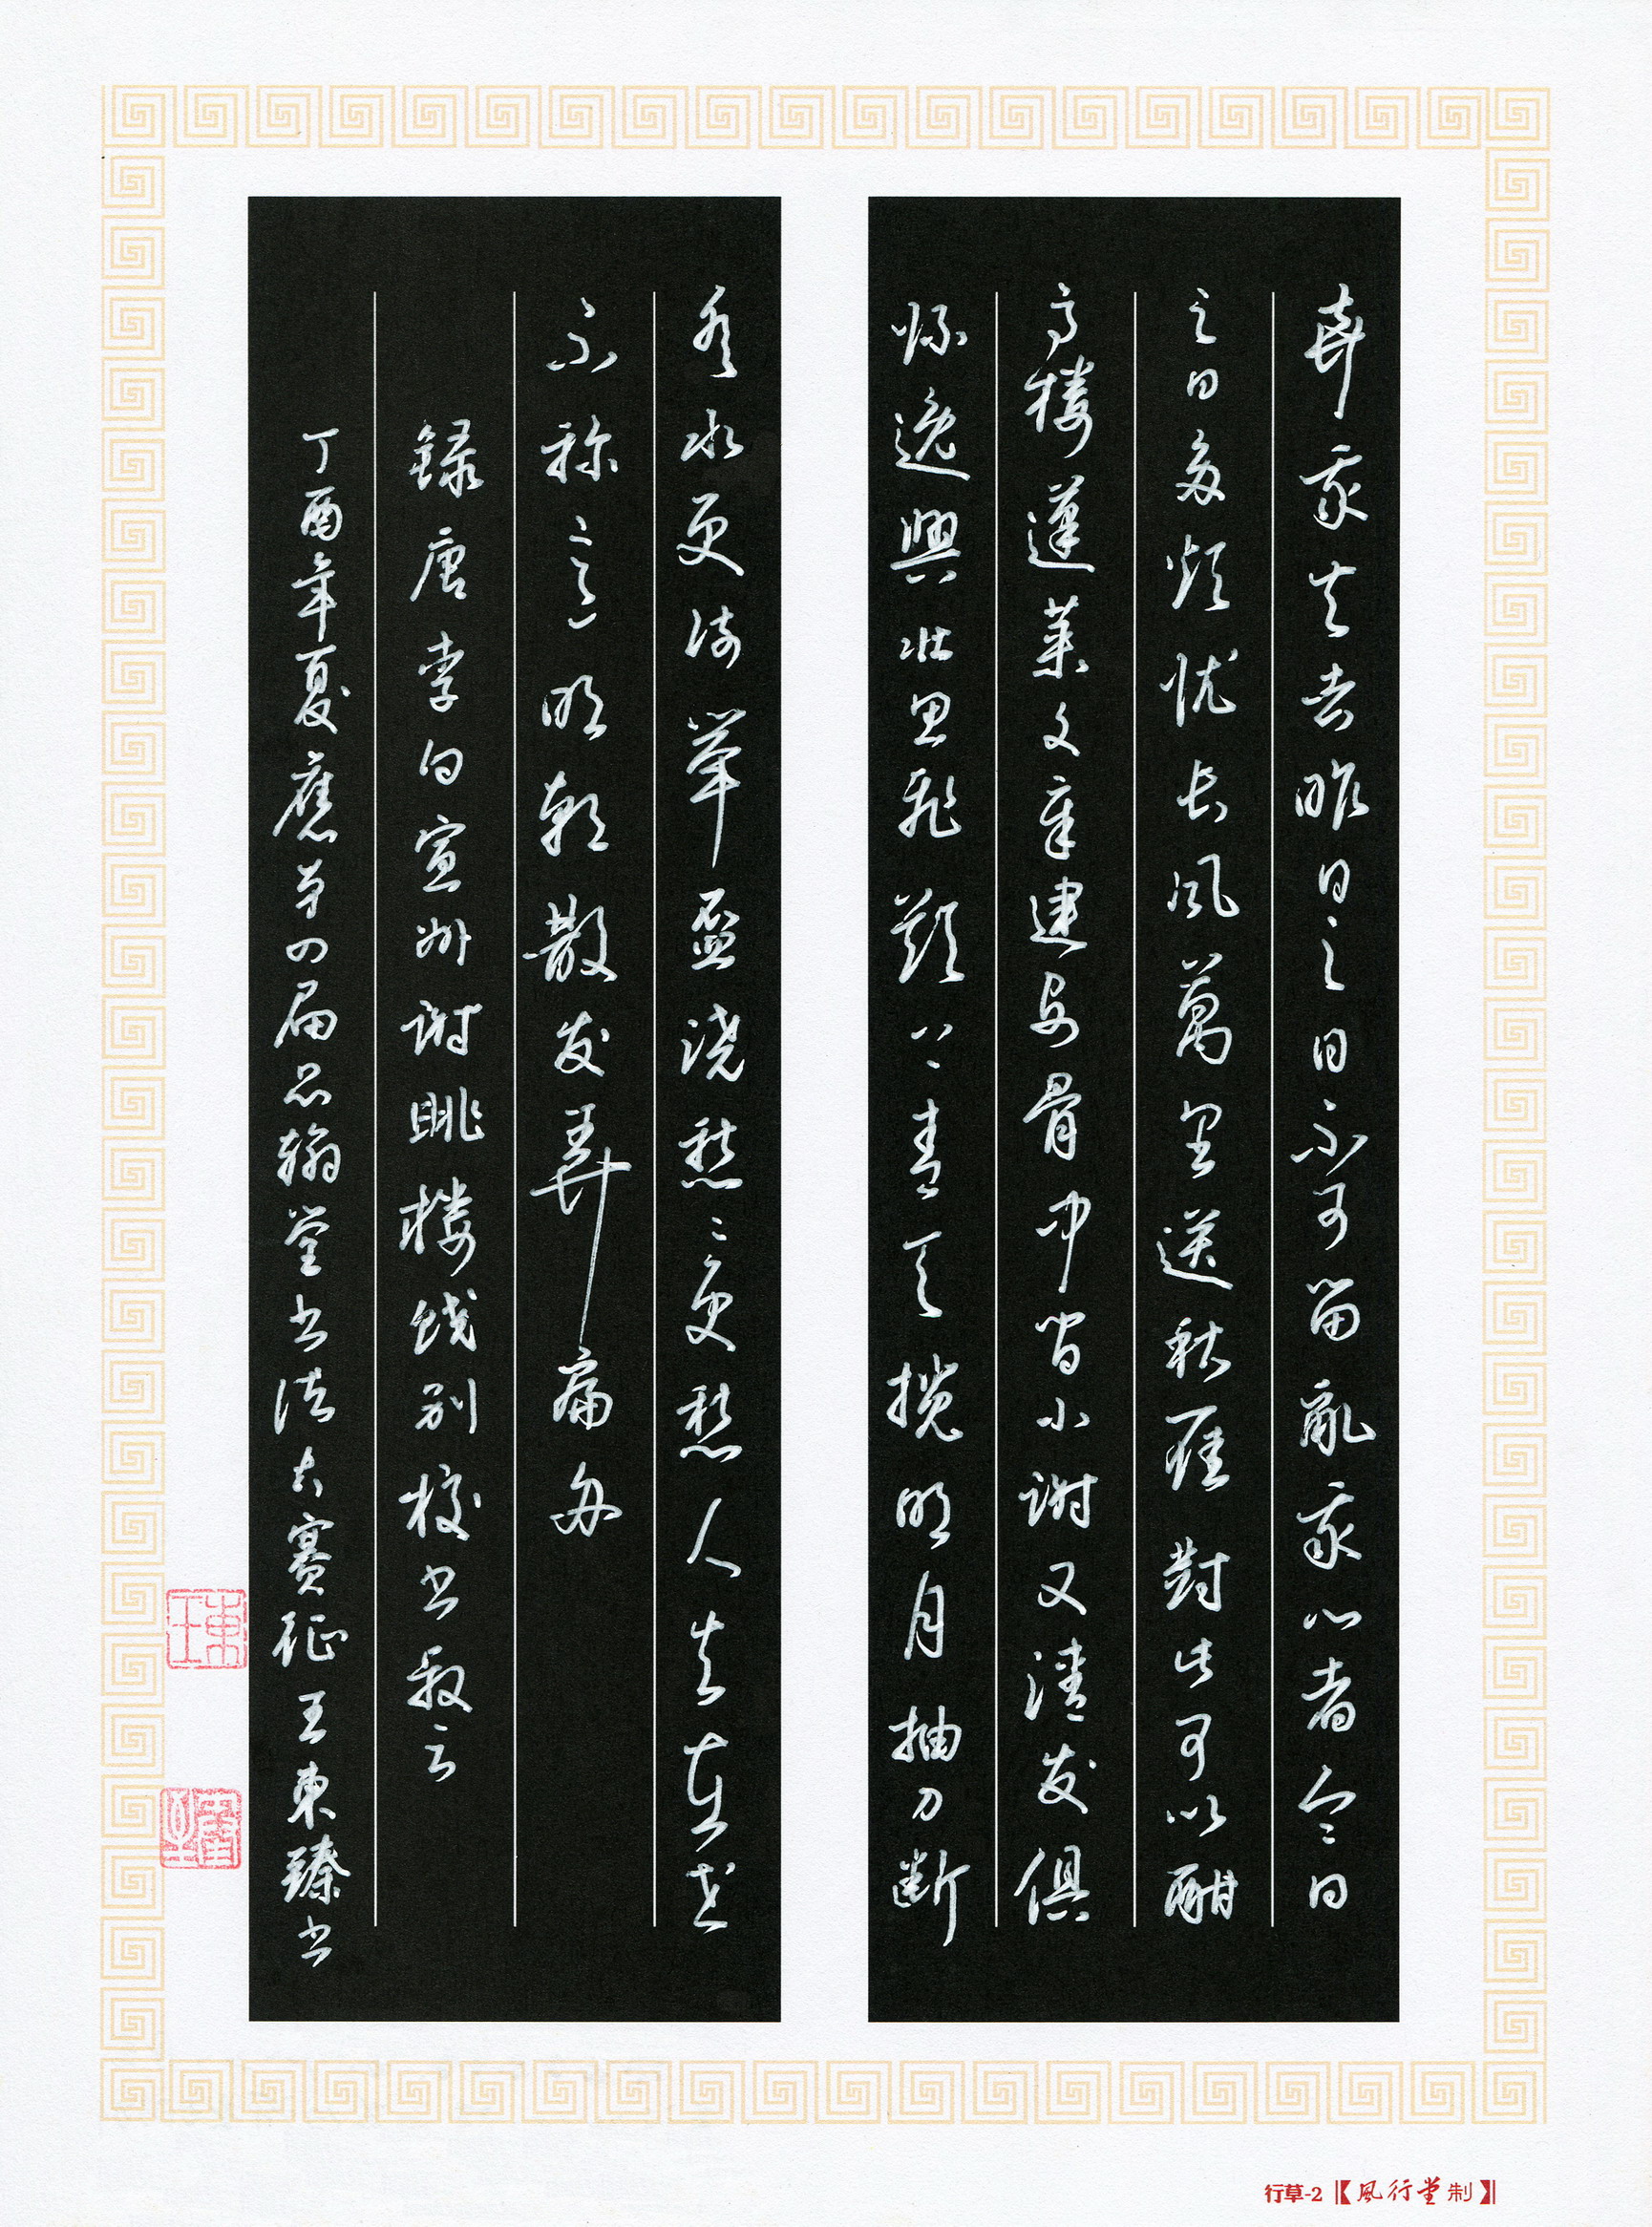 弃我去者昨日之日不可留亂我心者今日
之日多煩忧长風萬里送秋雁對此可以酣
高樓蓬萊文章建安骨中間小謝又清发俱
懷逸興壯思飛欲上青天攬明月抽刀斷
水水更流舉盃澆愁〻更愁人生在世
不称意明朝散发弄扁舟
録唐李白宣州謝眺樓餞别校书叔云
丁酉年夏應第四届品翰堂书法大赛征王東臻书
行草-2【風行堂制】